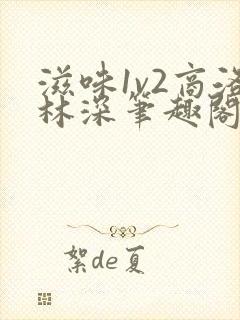 滋味1v2高洛
林深笔趣阁
絮de夏